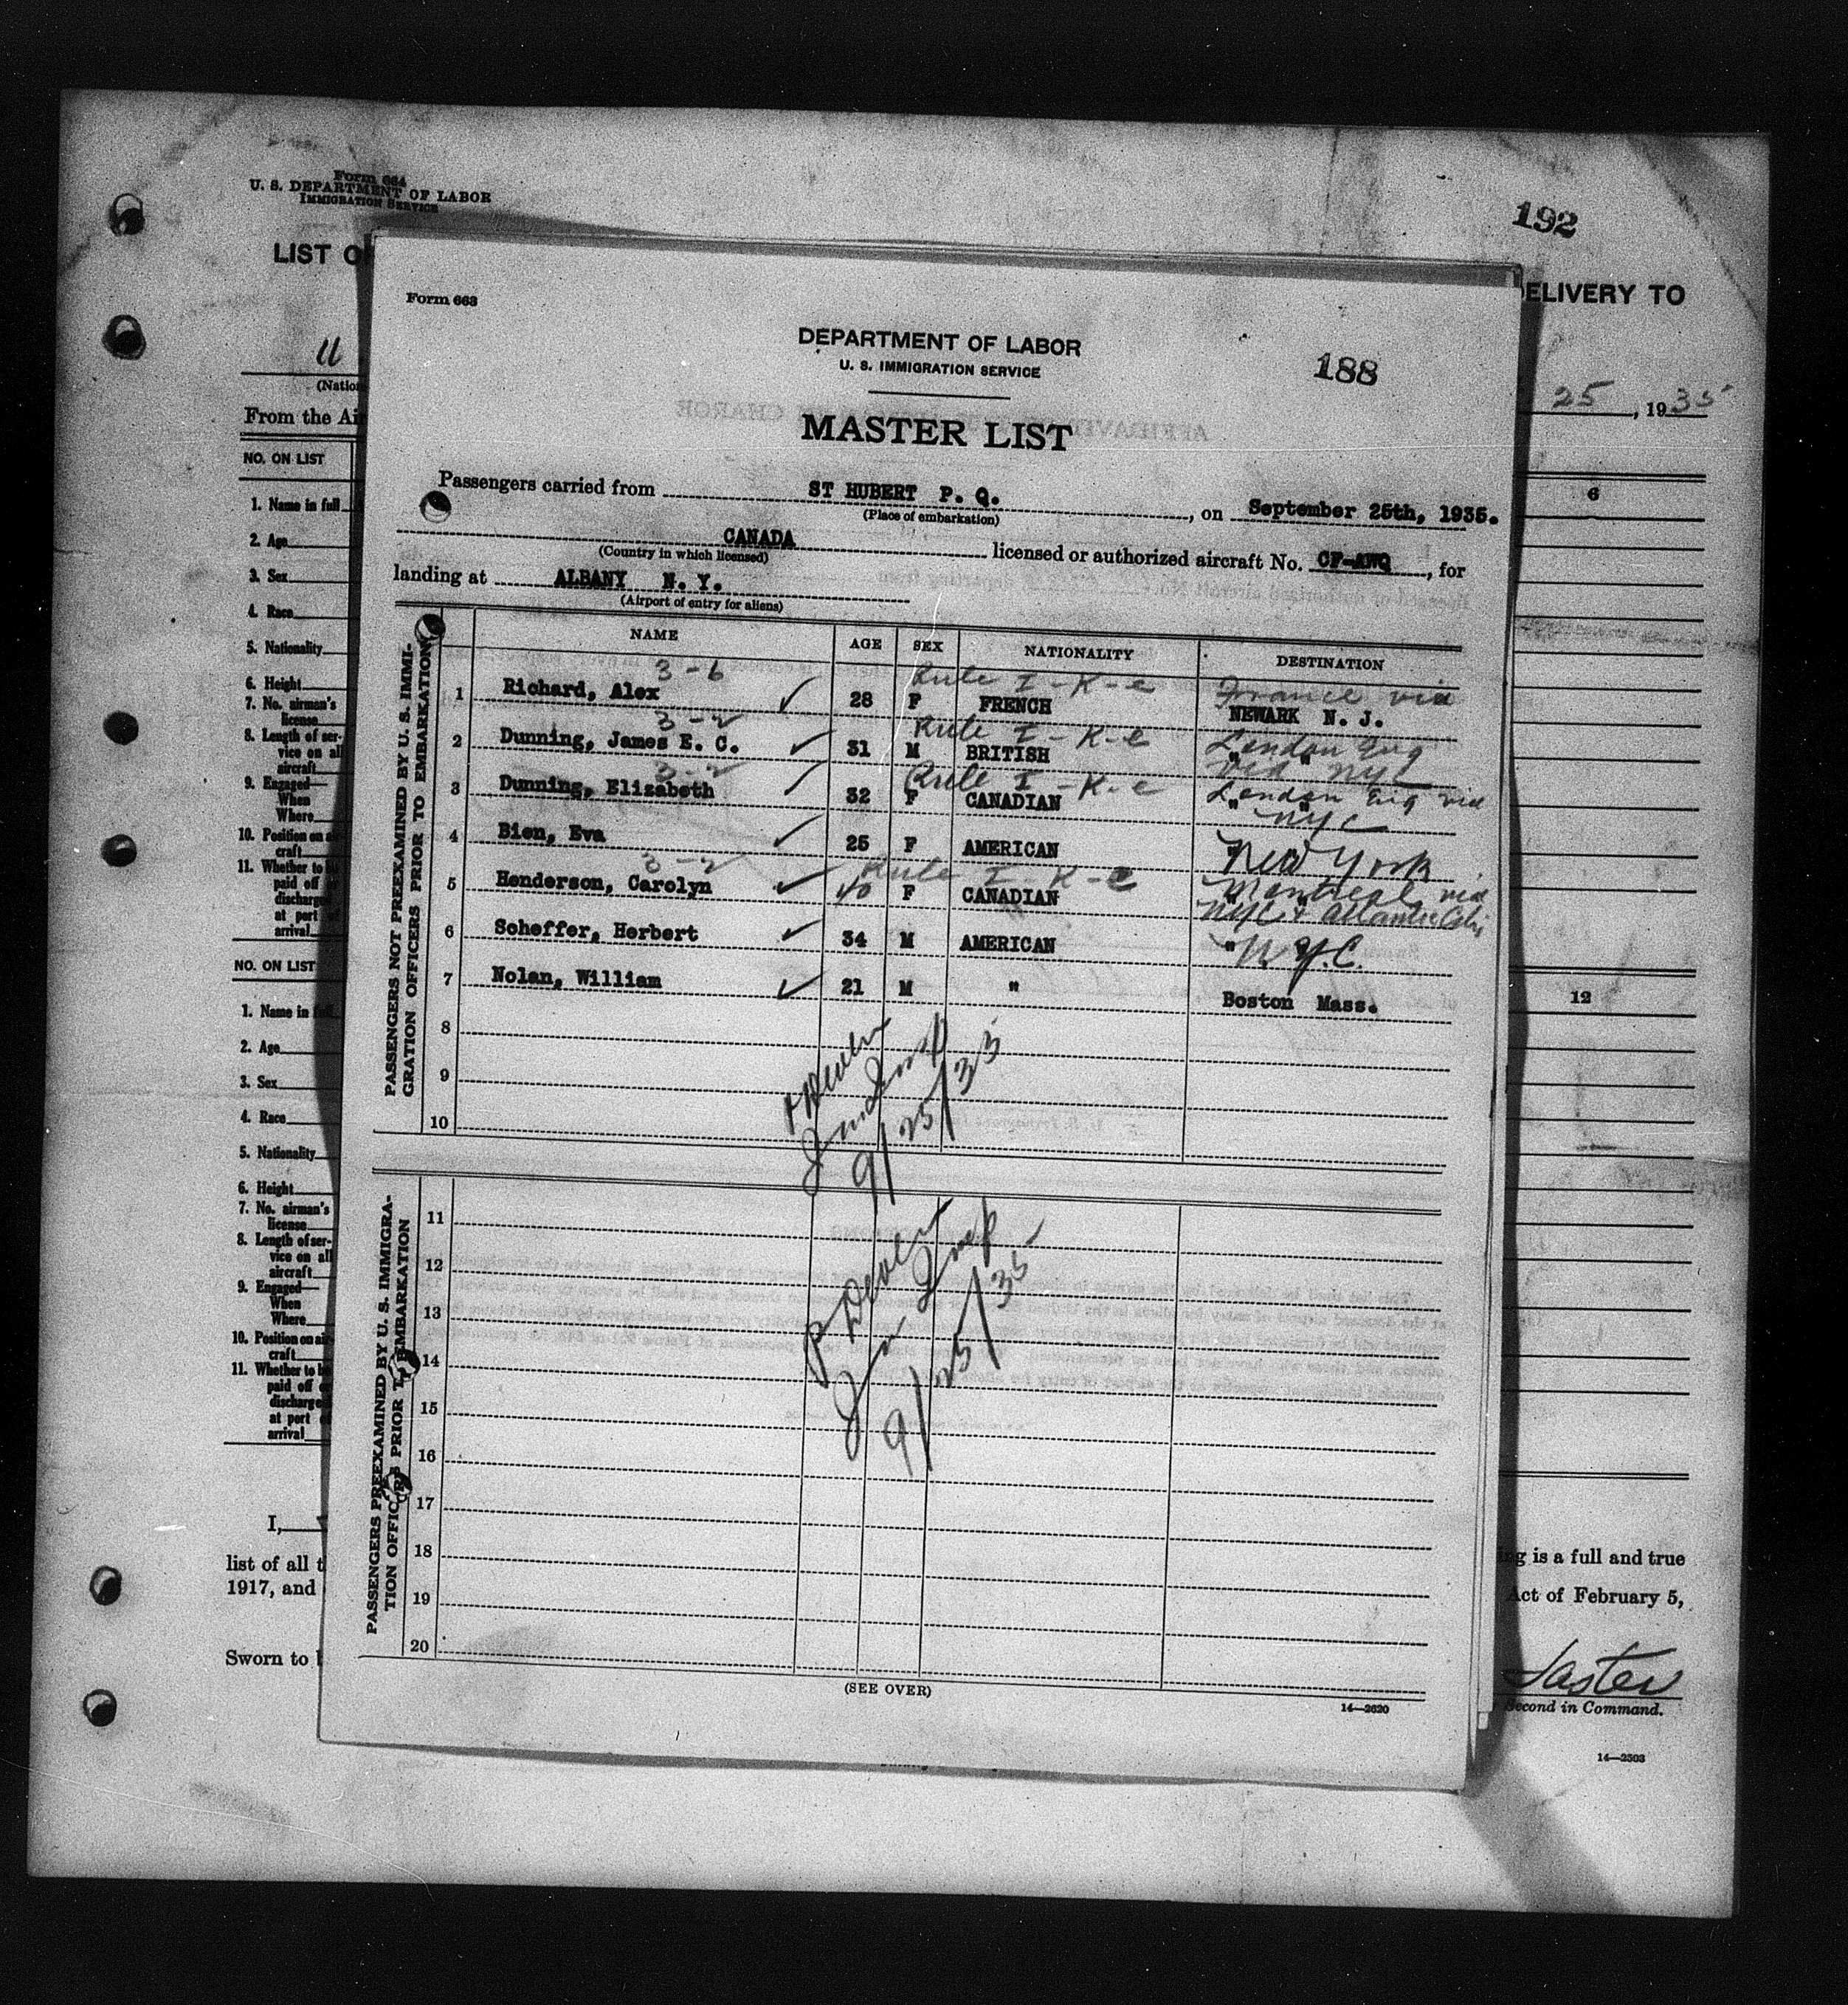 Form 664
U. S. DEPARTMENT OF LABOR
IMMIGRATION SERVICE
192
LIST O
ELIVERY TO
U
(Natio
25, 1935
From the Ai
NO. ON LIST
6
1. Name in full
2. Age
3. Sex
4. Race
5. Nationality
6. Height
7. No. airman's
license
8. Length of ser-
vice on all
aircraft
9. Engaged—
When
Where
10. Position on air-
craft
11. Whether to be
paid off or
discharged
at port of
arrival
NO. ON LIST
12
1. Name in full
2. Age
3. Sex
4. Race
5. Nationality
6. Height
7. No. airman's
license
8. Length of ser-
vice on all
aircraft
9. Engaged—
When
Where
10. Position on air-
craft
11. Whether to be
paid off or
discharged
at port of
arrival
I,
ing is a full and true
list of all t
1917, and
Act of February 5,
Sworn to b
Laster
Second in Command.
14—2503
Form 663
DEPARTMENT OF LABOR
U. S. IMMIGRATION SERVICE
188
MASTER LIST
Passengers carried from ST HUBERT P. Q., on September 25th, 1935.
(Place of embarkation)
CANADA licensed or authorized aircraft No. CF-AWQ, for
(Country in which licensed)
landing at ALBANY N. Y.
(Airport of entry for aliens)
NAME AGE SEX NATIONALITY DESTINATION
PASSENGERS NOT PREEXAMINED BY U. S. IMMI-
GRATION OFFICERS PRIOR TO EMBARKATION
3-6 Rule I-K-e France via
1 Richard, Alex ✓ 28 F FRENCH NEWARK N. J.
3-2 Rule I-K-e London Eng
2 Dunning, James E. C. ✓ 31 M BRITISH " "
via NYC
3-2 Rule I-K-e London Eng via
3 Dunning, Elizabeth ✓ 32 F CANADIAN " "
NYC
4 Bien, Eva ✓ 25 F AMERICAN " New York
3-2 Rule I-K-e Montreal via
5 Henderson, Carolyn ✓ 40 F CANADIAN " "
NYC & Atlantic City
6 Scheffer, Herbert ✓ 34 M AMERICAN " N.Y.C.
7 Nolan, William ✓ 21 M " Boston Mass.
8
9
10
9/25/35
PASSENGERS PREEXAMINED BY U. S. IMMIGRA-
TION OFFICERS PRIOR TO EMBARKATION
11
12
13
14
15
16
17
18
19
20
9/25/35
(SEE OVER)
14—2620